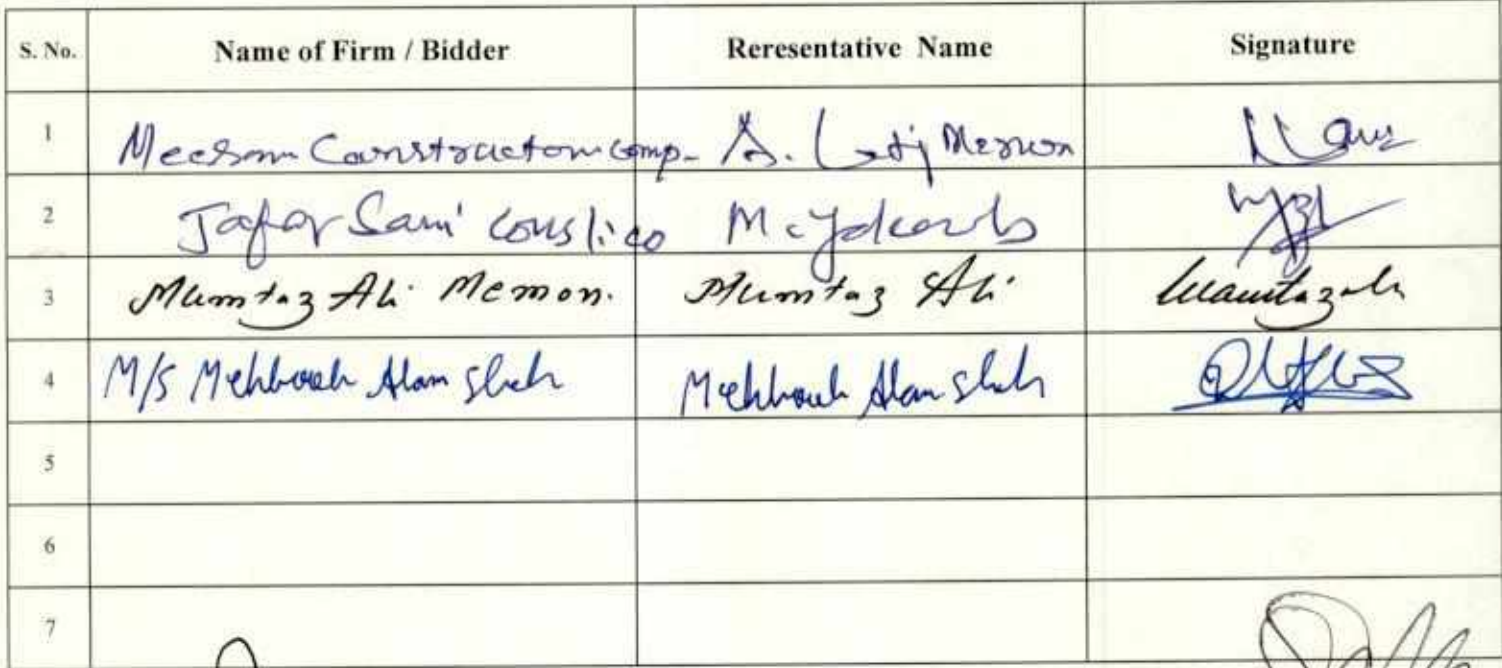 S. No. Name of Firm / Bidder Reresentative Name Signature
1 Meesom Constructon comp- A. Latif Memon
2 Jafar Sami Cons/: co M. Yakoub
3 Mumtaz Ali Memon. Mumtaz Ali Mumtaz Ali
4 M/S Mehboob Alam Shah Mehboob Alam Shah
5
6
7